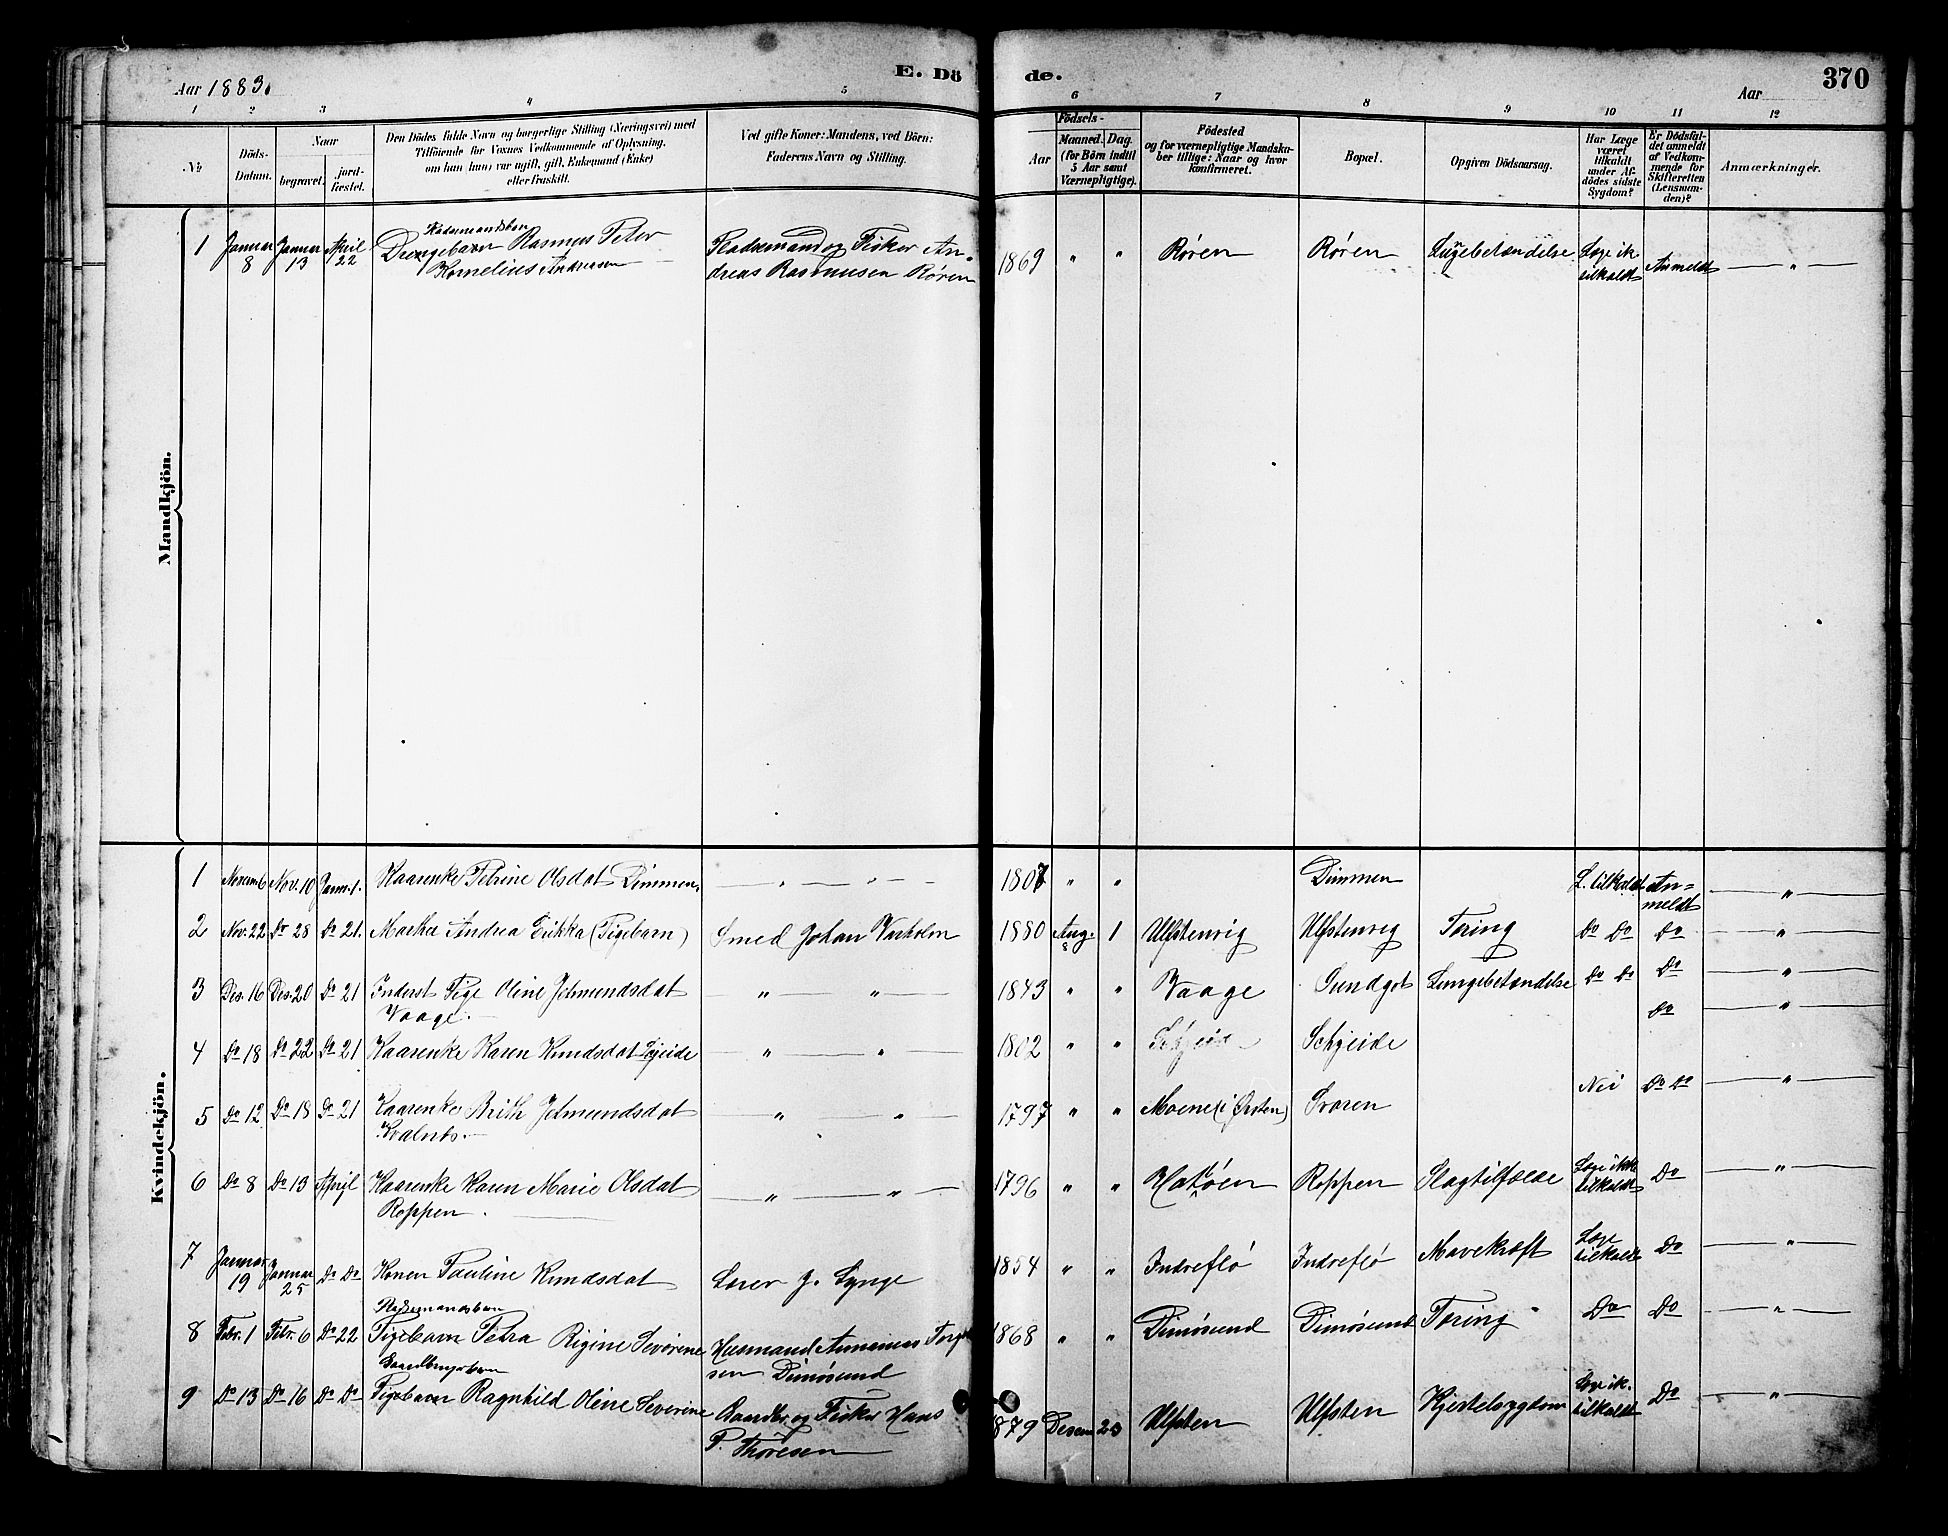 E. Dö de.
370
Aar 1883.
Aar
1 2 3 4 5 6 7 8 9 10 11 12
No
Döds-Datum.
Naar
begravet.
jord-fæstet.
Den Dödes fulde Navn og borgerlige Stilling (Næringsvei) med
Tilföiende for Voxnes Vedkommende af Oplysning,
om han (hun) var ugift, gift, Enkemand (Enke)
eller fraskilt.
Ved gifte Koner: Mandens, ved Börn:
Faderens Navn og Stilling.
Födsels-
Aar
Maaned. Dag.
(for Börn indtil
5 Aar samt
Værnepligtige).
Födested
og for værnepligtige Mandska-
ber tillige: Naar og hvor
konfirmeret.
Bopæl.
Opgiven Dödsaarsag.
Har Læge
været
tilkaldt
under Af-
dödes sidste
Sygdom?
Er Dödsfal-
det anmeldt
af Vedkom-
mende for
Skifteretten
(Lensman-
den)?
Anmærkninger.
Mandkjön.
1 Januar 8 Januar 13 April 22 Drengebarn Rasmus Peter
Kornelius Andersen
og Fisker An-
dreas Rasmussen Røren
1869 " " Røren Røren Lugebetændelse Læge ik tilkaldt Anmeldt — " —
Kvindekjön.
1 Novem 6 Nov. 10 Janu. 1. Kaarenke Petrine Olsdat Dimmen — " — " — 1807 " " Dimmen L. tilkaldt An=meldt — " —
2 Nov. 22 Do 28 Do 21. Marthe Andrea Erikka (Pigebarn) Smed Johan Varholm 1880 Aug. 8 1 Ulfstenvig Ulfstenvig Tæring Do Do Do — " —
3 Des. 16 Des. 20 Do 21 Inderst Pige Oline Jetmundsdat
Vaage. — " — " — 1843 " " Vaage Sundgot Lungebetændelse Do Do Do — " —
4 Do 18 Do 22 Do 21 Kaarenke Karen Knudsdat — " — " — 1802 " " Schjeide Do — " —
5 Do 12 Do 18 Do 21 Kaarenke Brith Jetmundsdat
— " — " — 1797 " " Moene (i Ørsten) Nei Do Do — " —
6 Do 8 Do 13 April Kaarenke Karen Marie Olsdat
Roppen. — " — " — 1796 " " Hatøen Roppen Slagtilfælde Læge ikke tilkaldt Do — " —
7 Januar 19 Januar 25 Do Do Konen Pauline Knudsdat J. Synge 1854 " " Indreflø Indreflø Mavekræft Læge tilkaldt Do — " —
8 Febr. 1 Febr. 6 Do 22 Pigebarn Petra Rigine Severine Husmand Annanias
sen Dimøsund 1868 " " Dimøsund Dimøsund Tæring Do Do — " —
9 Do 13 Do 16 Do Do Pigebarn Ragnhild Oline Severine og Fisker Hans
P. Thoresen 1879 Desem 20 Ulfsten Ulfsten Hjertesygdom Læge ik. tilkaldt Do — " —